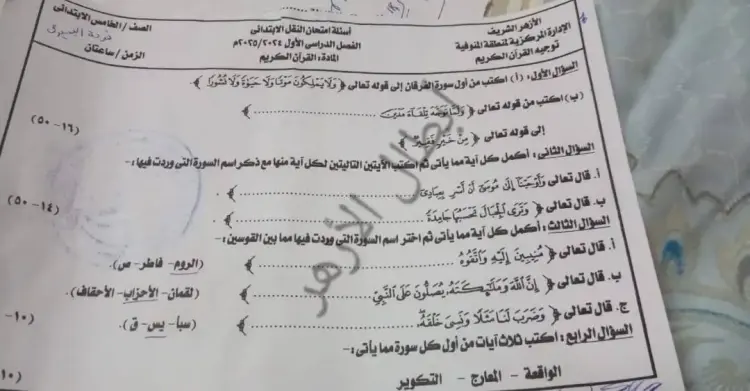 الأزهر الشريف
الإدارة المركزية لمنطقة المنوفية
توجيه القرآن الكريم
أسئلة امتحان النقل الابتدائى
الفصل الدراسى الأول ٢٠٢٤/ ٢٠٢٥م
المادة: القرآن الكريم
الصف/ الخامس الابتدائى
الزمن/ ساعتان
السؤال الأول: (أ) اكتب من أول سورة الفرقان إلى قوله تعالى ﴿ وَلَا يَمْلِكُونَ مَوْتًا وَلَا حَيَوٰةً وَلَا نُشُورًا ﴾
(ب) اكتب من قوله تعالى ﴿ وَلَمَّا تَوَجَّهَ تِلْقَاءَ مَدْيَنَ ....................... ﴾
إلى قوله تعالى ﴿ مِنْ خَيْرٍ فَقِيرٌ ﴾ (١٦ - ٥٠)
السؤال الثانى: أكمل كل آية مما يأتى ثم اكتب الآيتين التاليتين لكل آية منها مع ذكر اسم السورة التى وردت فيها:-
أ. قال تعالى ﴿ وَأَوْحَيْنَا إِلَىٰ مُوسَىٰ أَنْ أَسْرِ بِعِبَادِي ....................... ﴾
ب. قال تعالى ﴿ وَتَرَى الْجِبَالَ تَحْسَبُهَا جَامِدَةً ....................... ﴾ (١٤ - ٥٠)
السؤال الثالث: أكمل كل آية مما يأتى ثم اختر اسم السورة التى وردت فيها مما بين القوسين:-
أ. قال تعالى ﴿ مُنِيبِينَ إِلَيْهِ وَاتَّقُوهُ ....................... ﴾ (الروم - فاطر - ص).
ب. قال تعالى ﴿ إِنَّ اللَّهَ وَمَلَٰئِكَتَهُ يُصَلُّونَ عَلَى النَّبِيِّ ....................... ﴾ (لقمان - الأحزاب - الأحقاف).
ج. قال تعالى ﴿ وَضَرَبَ لَنَا مَثَلًا وَنَسِيَ خَلْقَهُ ....................... ﴾ (سبا - يس - ق). (١٠ -
السؤال الرابع: اكتب ثلاث آيات من أول كل سورة مما يأتى:-
الواقعة - المعارج - التكوير (١٠
الأزهر